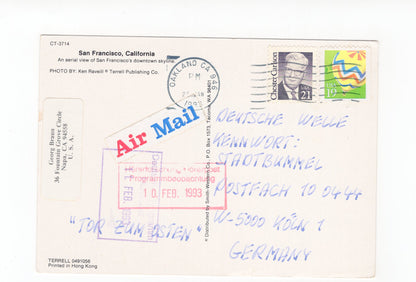 CT-3714
San Francisco, California
An aerial view of San Francisco's downtown skyline.
PHOTO BY: Ken Raveill © Terrell Publishing Co.
OAKLAND CA 946
PM
1993
Chester Carlson
21
USA
Air Mail
Georg Braun
36 Fountain Grove Circle
Napa, CA 94558
U. S. A.
Programmbeobachtung
10. FEB. 1993
"TOR ZUM OSTEN"
® Distributed by Smith-Western Co. P.O. BOX 1573, Tacoma, WA 98401
DEUTSCHE WELLE
KENNWORT:
STADTBUMMEL
POSTFACH 10 0444
W-5000 KÖLN 1
GERMANY
TERRELL 0491056
Printed in Hong Kong